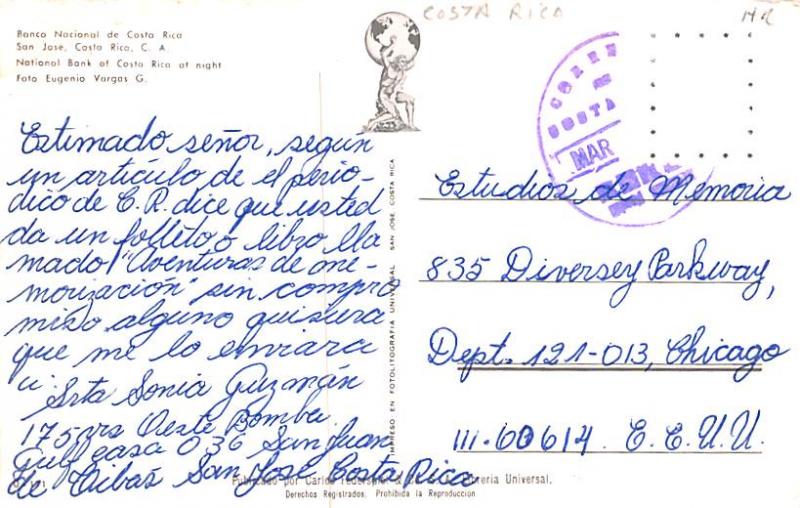 COSTA RICA
Banco Nacional de Costa Rica
San José, Costa Rica, C. A.
National Bank of Costa Rica at night
Foto Eugenio Vargas G.
Estimado señor, según
un artículo de el perio-
dico de C.R. dice que usted
da un folleto o libro lla
mado "Aventuras de me-
morización" sin compro
miso alguno quisiera
que me lo enviara
a: Srta Sonia Guzmán
175 vrs Oeste Bomba
Gulf casa 036 San Juan
de Tibás San José Costa Rica
IMPRESO EN FOTOLITOGRAFIA UNIVERSAL SAN JOSE, COSTA RICA
CORREO
DE
COSTA
MAR
Estudios de Memoria
835 Diversey Parkway,
Dept. 121-013, Chicago
Ill. 60614. E.E.U.U.
Publicado por Carlos Federspiel & Librería Universal.
Derechos Registrados. Prohibida la Reproducción